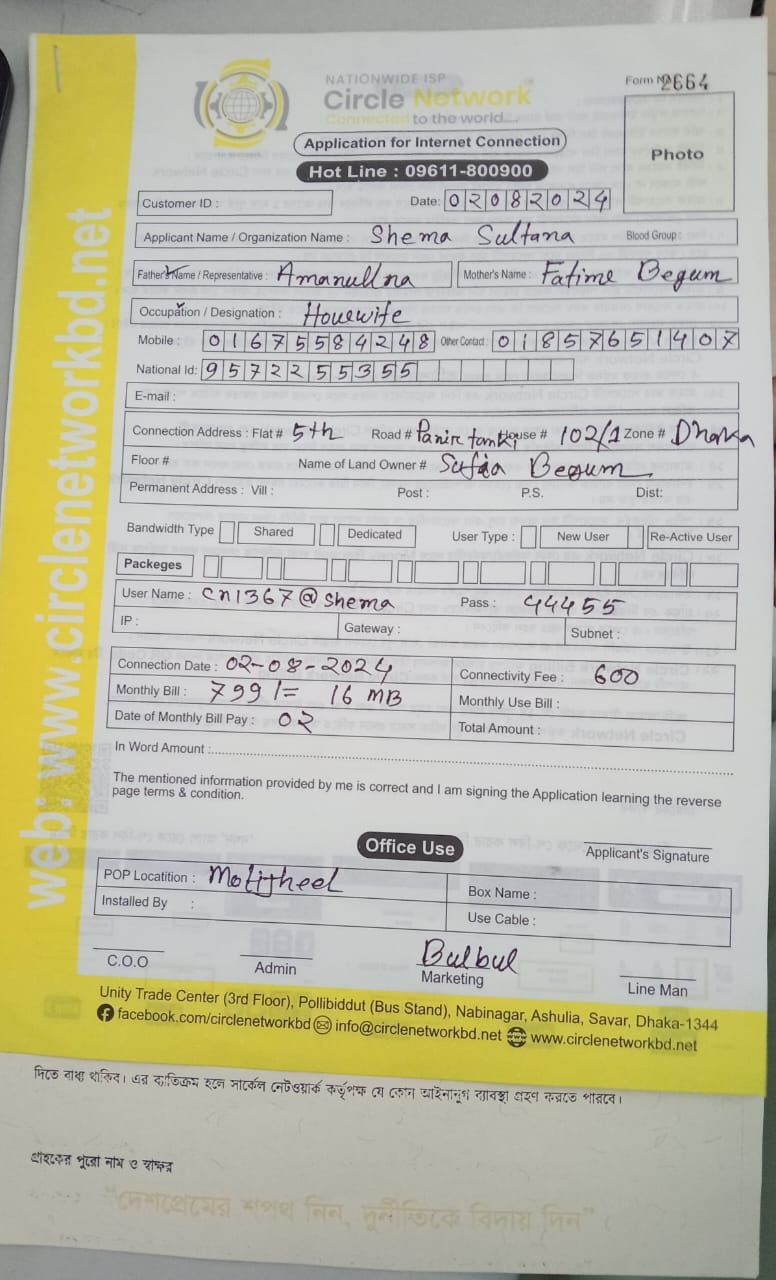 NATIONWIDE ISP
Circle Network
Connected to the world....
Form No 2664
Application for Internet Connection
Hot Line : 09611-800900
Photo
Customer ID :
Date: 02082024
Applicant Name / Organization Name : Shema Sultana Blood Group :
Father's Name / Representative : Amanullna Mother's Name : Fatime Begum
Occupation / Designation : Houewife
Mobile : 01675584248 Other Contact : 01857651407
National Id: 9572255355
E-mail :
Connection Address : Flat # 5th Road # Panir tanki House # 102/1 Zone # Dhaka
Floor # Name of Land Owner # Sufia Begum
Permanent Address : Vill : Post : P.S. Dist:
Bandwidth Type Shared Dedicated User Type : New User Re-Active User
Packeges
User Name : cn1367@shema Pass : 44455
IP : Gateway : Subnet :
Connection Date : 02-08-2024 Connectivity Fee : 600
Monthly Bill : 799/= 16 MB Monthly Use Bill :
Date of Monthly Bill Pay : 02 Total Amount :
In Word Amount :
The mentioned information provided by me is correct and I am signing the Application learning the reverse
page terms & condition.
Office Use
Applicant's Signature
POP Locatition : Motijheel Box Name :
Installed By : Use Cable :
Bulbul
C.O.O Admin Marketing Line Man
Unity Trade Center (3rd Floor), Pollibiddut (Bus Stand), Nabinagar, Ashulia, Savar, Dhaka-1344
facebook.com/circlenetworkbd info@circlenetworkbd.net www.circlenetworkbd.net
web: www.circlenetworkbd.net
দিতে বাধ্য থাকিব। এর ব্যতিক্রম হলে সার্কেল নেটওয়ার্ক কর্তৃপক্ষ যে কোন আইনানুগ ব্যাবস্থা গ্রহণ করতে পারবে।
গ্রাহকের পুরো নাম ও স্বাক্ষর
"দেশপ্রেমের শপথ নিন, দুর্নীতিকে বিদায় দিন"